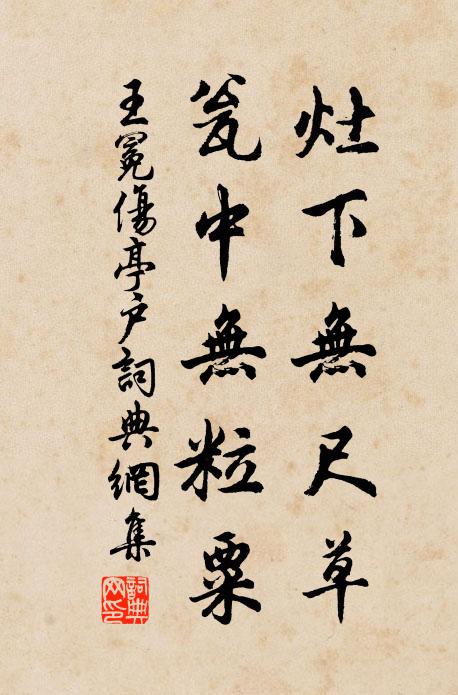 灶下無尺草
瓮中無粒粟
王冕傷亭户詞典網集
詞典
网印